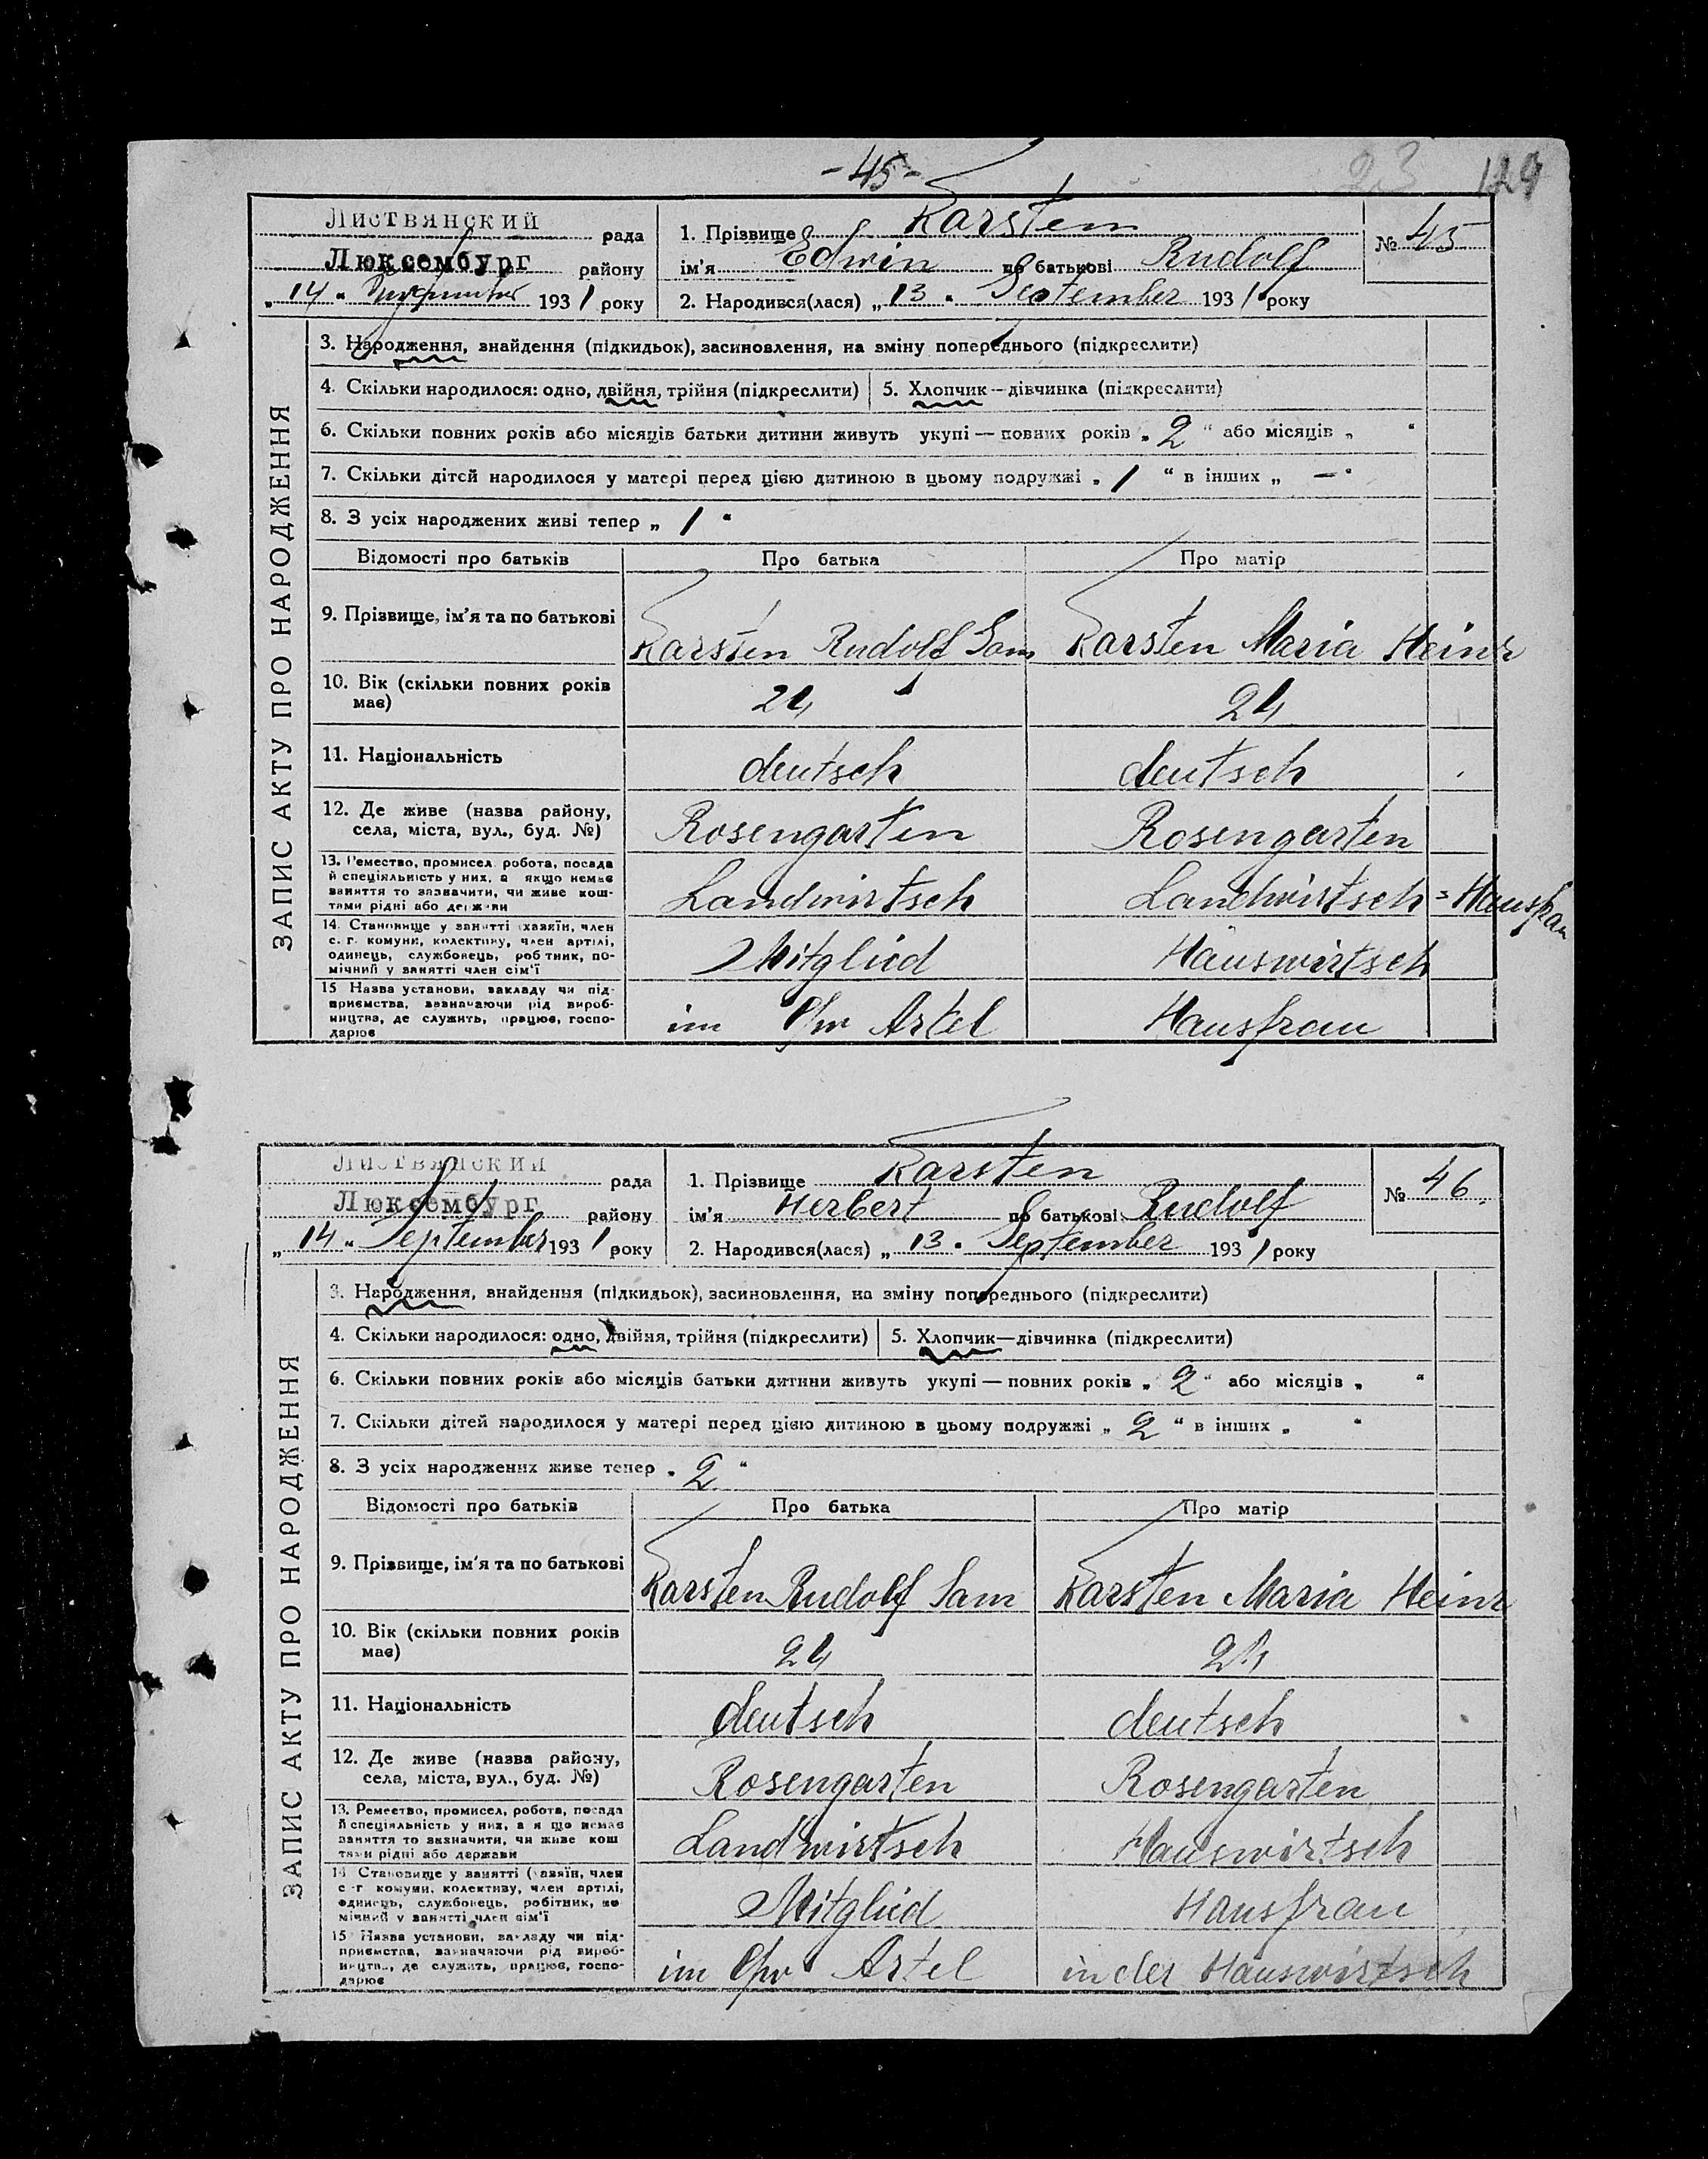 - 45 -
23 129
Листвянский рада
Люксембург району
„ 14 “ September 1931 року
1. Прізвище Karsten
ім’я Edwin по батькові Rudolf
2. Народився(лася) „ 13 “ September 1931 року
№ 45
ЗАПИС АКТУ ПРО НАРОДЖЕННЯ
3. Народження, знайдення (підкидьок), засиновлення, на зміну попереднього (підкреслити)
4. Скільки народилося: одно, двійня, трійня (підкреслити) 5. Хлопчик—дівчинка (підкреслити)
6. Скільки повних років або місяців батьки дитини живуть укупі — повних років „ 2 “ або місяців „ “
7. Скільки дітей народилося у матері перед цією дитиною в цьому подружжі „ 1 “ в інших „ — “
8. З усіх народжених живі тепер „ 1 “
Відомості про батьків Про батька Про матір
9. Прізвище, ім’я та по батькові Karsten Rudolf Sam Karsten Maria Heinr
10. Вік (скільки повних років
має) 24 24
11. Національність deutsch deutsch
12. Де живе (назва району,
села, міста, вул., буд. №) Rosengarten Rosengarten
13. Ремество, промисел, робота, посада
й спеціяльність у них, а якщо немає
заняття то зазначити, чи живе кош-
тами рідні або держави Landwirtsch Landwirtsch = Hausfrau
14. Становище у занятті (хазяїн, член
с.-г. комуни, колективу, член артілі,
одинець, службовець, робітник, по-
мічний у занятті член сім’ї Mitglied Hauswirtsch
15. Назва установи, закладу чи під-
приємства, зазначаючи рід вироб-
ництва, де служить, працює, госпо-
дарює im Artel Hausfrau
Листвянский рада
Люксембург району
„ 14 “ September 1931 року
1. Прізвище Karsten
ім’я Herbert по батькові Rudolf
2. Народився(лася) „ 13 “ September 1931 року
№ 46
ЗАПИС АКТУ ПРО НАРОДЖЕННЯ
3. Народження, знайдення (підкидьок), засиновлення, на зміну попереднього (підкреслити)
4. Скільки народилося: одно, двійня, трійня (підкреслити) 5. Хлопчик—дівчинка (підкреслити)
6. Скільки повних років або місяців батьки дитини живуть укупі — повних років „ 2 “ або місяців „ “
7. Скільки дітей народилося у матері перед цією дитиною в цьому подружжі „ 2 “ в інших „ “
8. З усіх народжених живе тепер „ 2 “
Відомості про батьків Про батька Про матір
9. Прізвище, ім’я та по батькові Karsten Rudolf Sam Karsten Maria Heinr
10. Вік (скільки повних років
має) 24 24
11. Національність deutsch deutsch
12. Де живе (назва району,
села, міста, вул., буд. №) Rosengarten Rosengarten
13. Ремество, промисел, робота, посада
й спеціяльність у них, а якщо немає
заняття то зазначити, чи живе кош
тами рідні або держави Landwirtsch Hauswirtsch
14. Становище у занятті (хазяїн, член
с.-г. комуни, колективу, член артілі,
одинець, службовець, робітник, по
мічний у занятті член сім’ї Mitglied Hausfrau
15. Назва установи, закладу чи під-
приємства, зазначаючи рід вироб-
ництва, де служить, працює, госпо-
дарює im Artel in der Hauswirtsch